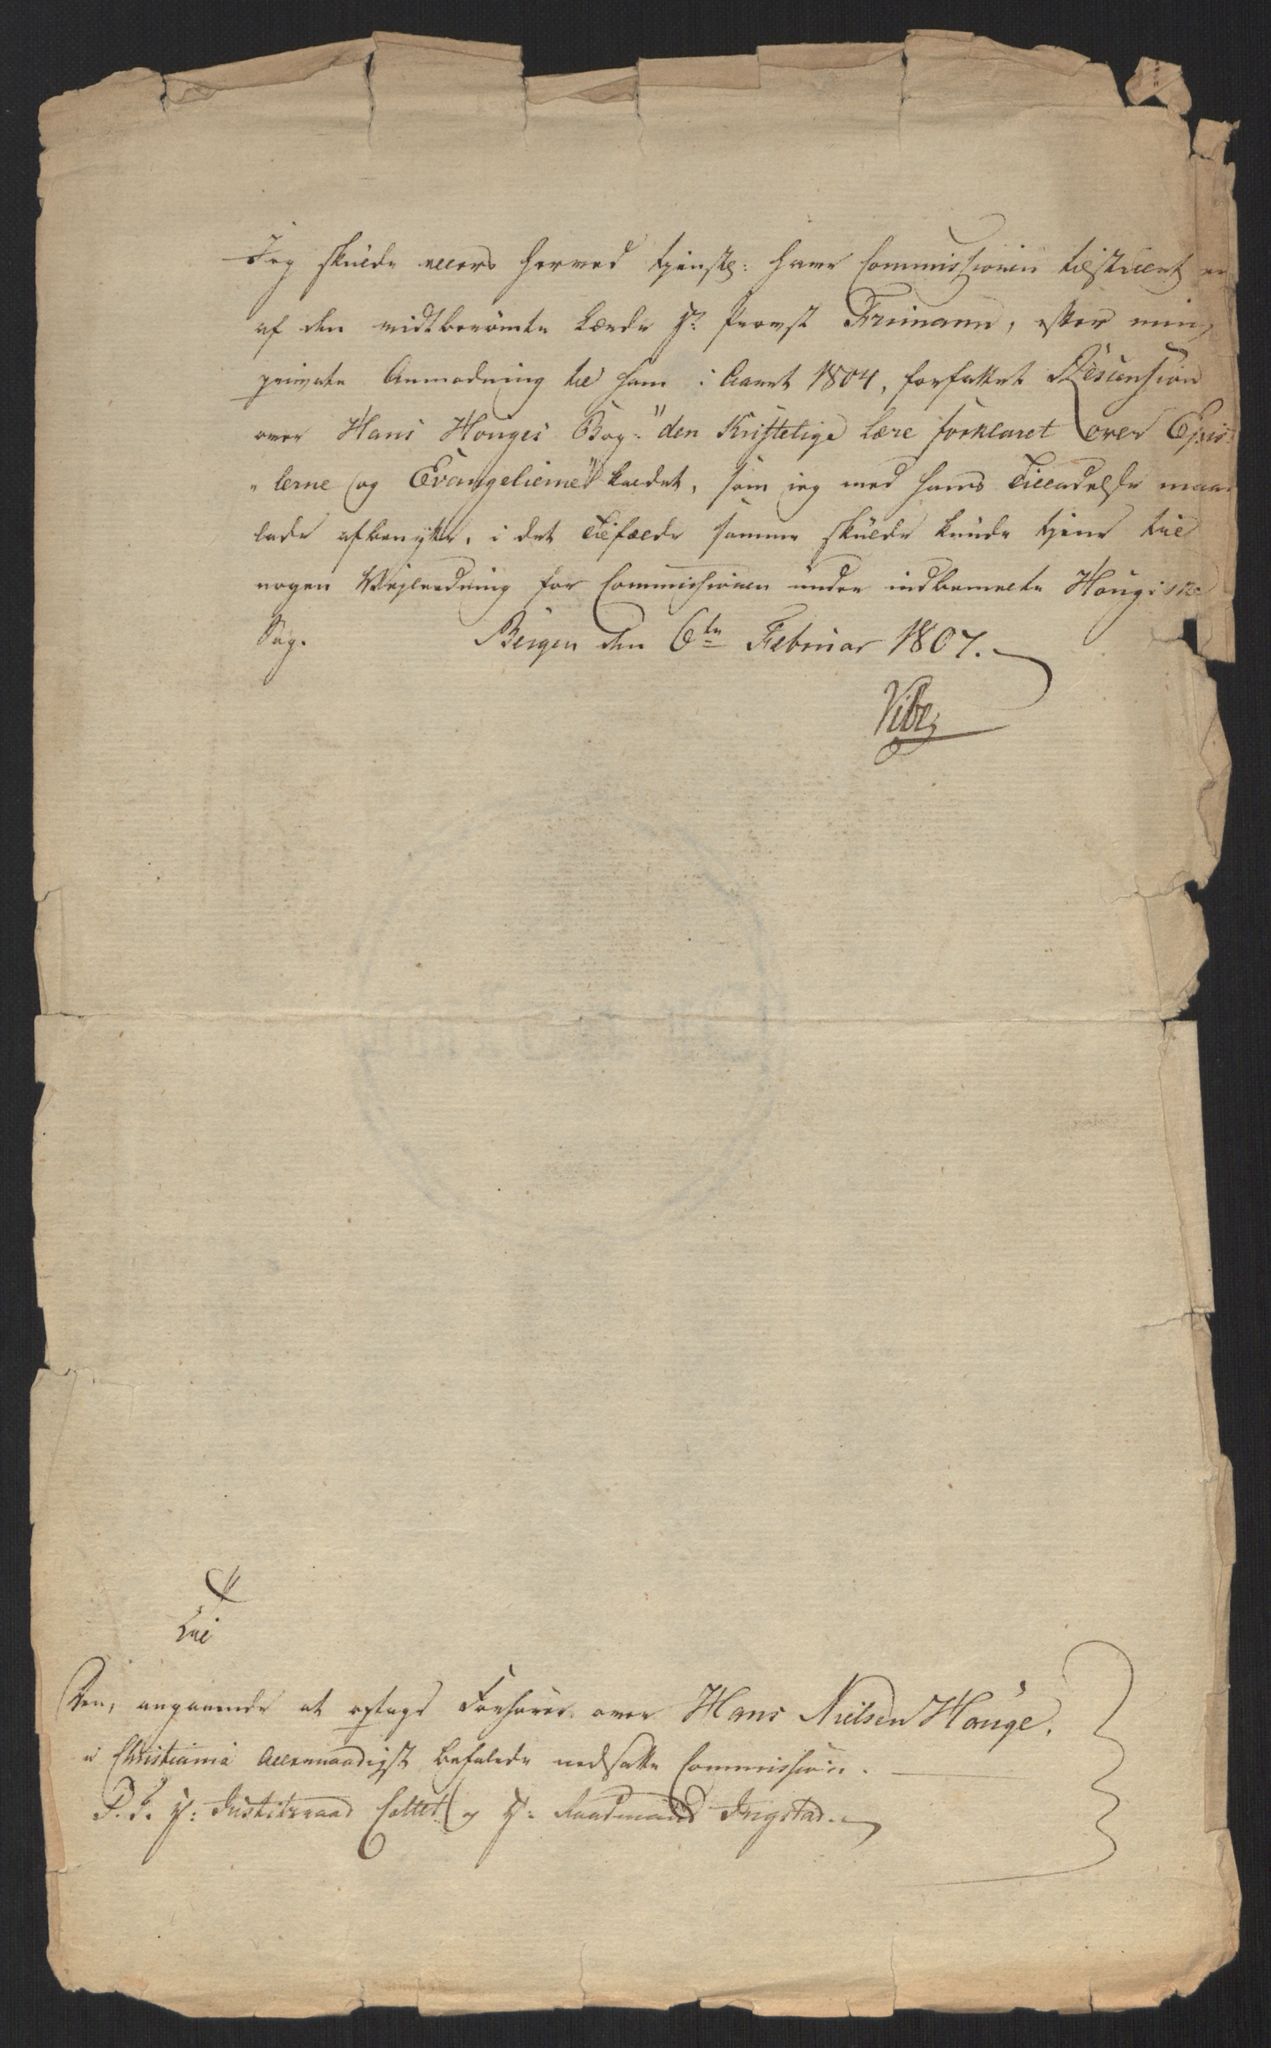 Jeg skulde ellers herved tjenstl: have Commissionen tilstillet en
af den vidtberömte Lærde Hr Provst Frimann, efter min
private Anmodning til ham i Aaret 1804, forfattet Resension
over Hans Houges Bog: "den Kristelige Lære forklaret over Epis-
"lerne og Evangelierne" kaldet, som jeg med hans Tilladelse maa
lade afbenytte, i det Tilfælde samme skulde kunde tjene til
nogen Vejledning for Commissionen under indbemelte Hougiske
Sag.
Bergen den 6te Februar 1807.
Vibe
Til
Den, angaaende at optage Forhører over Hans Nielsen Houge,
i Christiania Allernaadigst befalede nedsatte Commission.
P. T. Hr: Justitsraad Collet og Hr: Raadmand Ingstad.